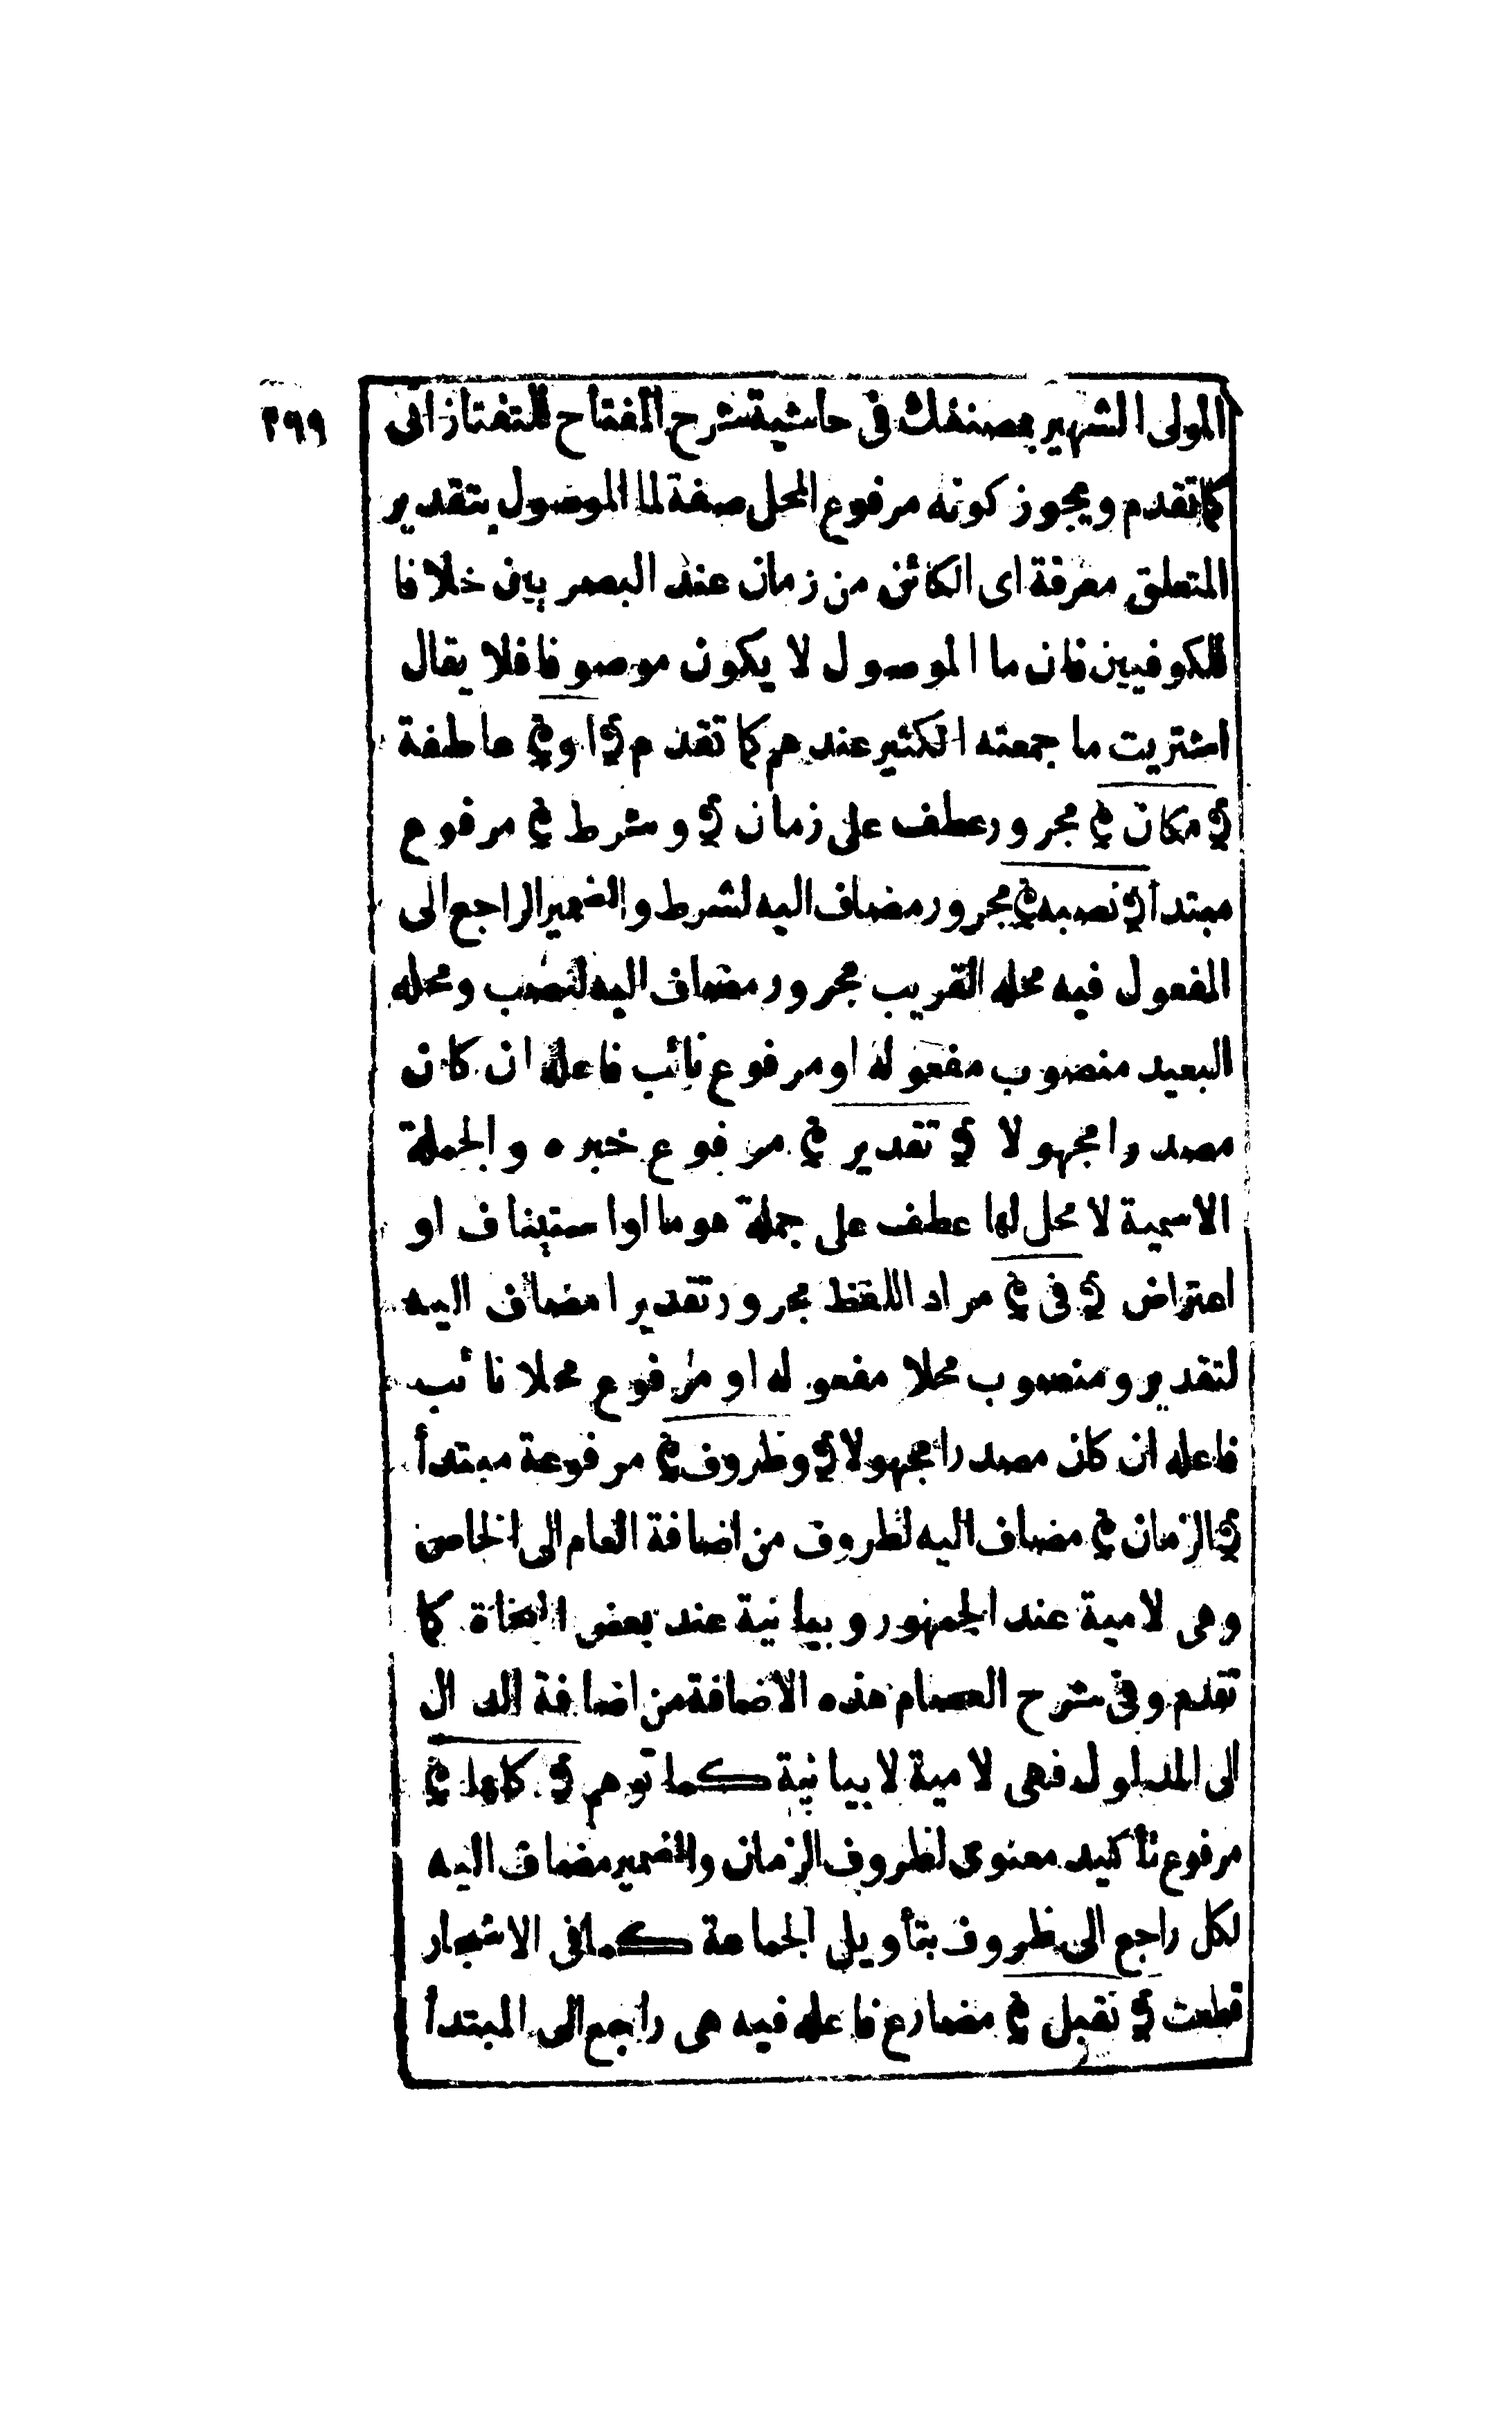 ٢٩٩
المولى الشهير بمصنفك فى حاشية شرح المفتاح للتفتازانى
كما تقدم ويجوز كونه مرفوع المحل صفة لما الموصول بتقدير
المتعلق معرفة اى الكائن من زمان عند البصريين خلافا
للكوفيين فان ما الموصول لا يكون موصوفا فلا يقال
اشتريت ما جمعته الكثير عندهم كما تقدم ﴿ او ﴾ عاطفة
﴿ مكان ﴾ مجرور عطف على زمان ﴿ وشرط ﴾ مرفوع
مبتدأ ﴿ نصبه ﴾ مجرور مضاف اليه لشرط والضمير الراجع الى
المفعول فيه محله القريب مجرور مضاف اليه لنصب ومحله
البعيد منصوب مفعوله او مرفوع نائب فاعله ان كان
مصدرا مجهولا ﴿ تقدير ﴾ مرفوع خبره والجملة
الاسمية لا محل لها عطف على جملة هو ما او استيناف او
اعتراض ﴿ فى ﴾ مراد اللفظ مجرور تقديرا مضاف اليه
لتقدير ومنصوب محلا مفعوله او مرفوع محلا نائب
فاعله ان كان مصدرا مجهولا ﴿ وظروف ﴾ مرفوعة مبتدأ
﴿ الزمان ﴾ مضاف اليه لظروف من اضافة العام الى الخاص
وهى لامية عند الجمهور وبيانية عند بعض النحاة كما
تقدم وفى شرح العصام هذه الاضافة من اضافة الدال
الى المدلول فهى لامية لا بيانية كما توهم ﴿ كلها ﴾
مرفوع تأكيد معنوى لظروف الزمان والضمير مضاف اليه
لكل راجع الى ظروف بتأويل الجماعة كما فى الاشجار
قطعت ﴿ تقبل ﴾ مضارع فاعله فيه هى راجع الى المبتدأ